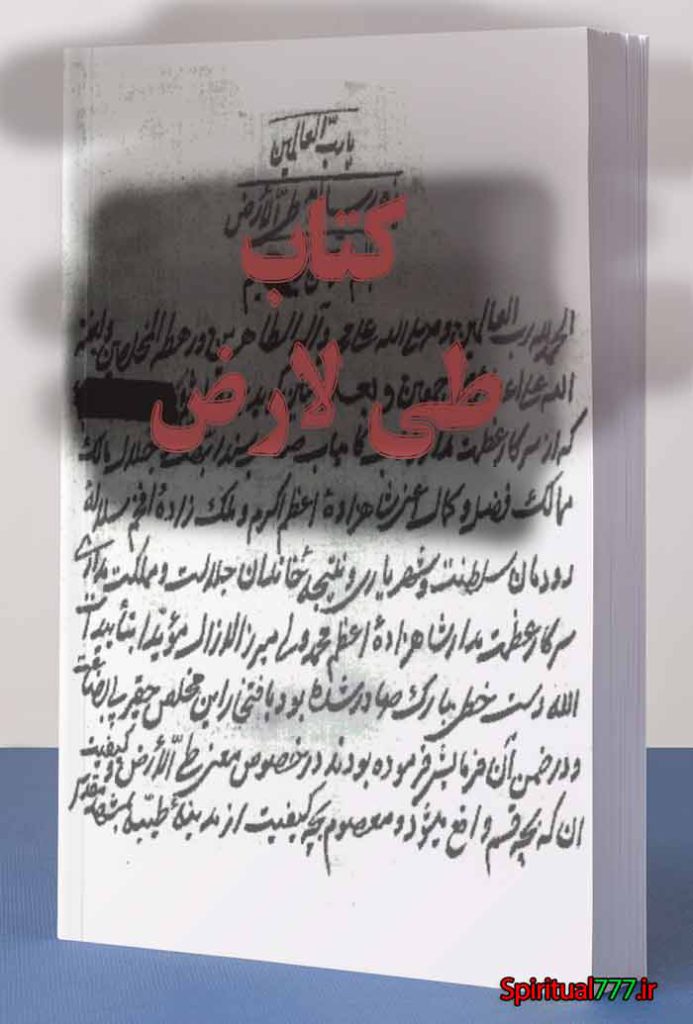 یا رب العالمین
طی الأرض
کتاب
الحمد لله رب العالمین و صلی الله علی محمد و آله الطاهرین و رهطه المخلصین و لعنة
الله علی اجمعین و بعد چنین گوید
طی لارض
که از سرکار عظمت مدار کامیاب جلال مالک
ممالک فضل و کمال اعنی شاهزادهٔ اعظم اکرم و ملک زادهٔ افخم سلالهٔ
دودمان سلطنت و شهریاری و نتیجهٔ خاندان جلالت و مملکت مداری
سرکار عظمت مدار شاهزادهٔ اعظم محمد ولی میرزا لازال مؤیدا بتأییدات
الله دست خطی مبارک صادر شده بود بافتخار این مخلص حقیر بی بضاعت
و در ضمن آن فرمایش فرموده بودند در خصوص معنی طی الأرض و کیفیت
ان که بچه قسم واقع میشود و معصوم بچه کیفیت از مدینهٔ طیبه بمشهد مقدس
Spiritual777.ir